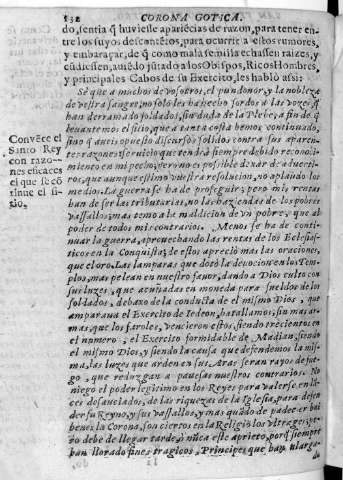 132 CORONA GOTICA.
do, sentia q̃ huviesse aparẽcias de razon, para tener en-
tre los suyos descontẽtos, para ocurrir a estos rumores,
y embaraçar, de q̃ como mala semilla echassen raizes, y
cũdiessen, aviẽdo jutado a los Obispos, Ricos Hombres,
y principales Cabos de su Exercito, les hablò assi:
Sè que a muchos de vosotros, el pundonor, y la nobleza
de vestra sangre, no solo les ha hecho sordos a las vozes, q̃
han derramado soldados, sin duda de la Plebe, a fin de q̃
levantemos el sitio, que a tanta costa hemos continuado,
sino q̃ aueis opuesto discursos solidos contra sus aparen-
te razones; servicio que tendrà siempre debido reconoci-
miento en mi pecho, pero no es possible dexar de aduerti-
ros, que aunque estimo vuestra resolucion, no aplaudo los
medios. La guerra se ha de proseguir; pero mis rentas
han de ser las tributarias, no las haziendas de los pobres
vassallos; mas temo a la maldicion de vn pobre, que al
poder de todos mis contrarios. Menos se ha de conti-
nuar la guerra, aprovechando las rentas de los Eclesias-
ticos en la Conquista; de estos aprecio mas las oraciones,
que el oro. Las lamparas que dotò la devocion en los Tem-
plos, mas pelean en nuestro favor, dando a Dios culto con
sus luzes, que acuñadas en moneda para sueldos de los
soldados, debaxo de la conducta de el mismo Dios, que
amparaua el Exercito de Iedeon, batallamos, sin mas ar-
mas, que los faroles, vencieron estos, siendo trecientos en
el numero, el Exercito formidable de Madian, siendo
el mismo Dios, y siendo la causa que defendemos la mis-
ma, las luzes que arden en sus Aras seràn rayos de fue-
go, que reduzgan a pauesas nuestros contrarios. No
niego el poder legitimo en los Reyes para valerse en lã-
ces desauciados, de las riquezas de la Iglesia, para defen-
der su Reyno, y sus vassallos, y mas quãdo de padecer bai-
benes la Corona, son ciertos en la Religiõ los vltrages; pe-
ro debe de llegar tarde, ò nũca este aprieto, porq̃ siempre
han llorado fines tragicos, Principes que han alarga-
do
Convẽce el
Santo Rey
con razo-
nes eficaces
el que se cõ-
tinue el si-
tio.